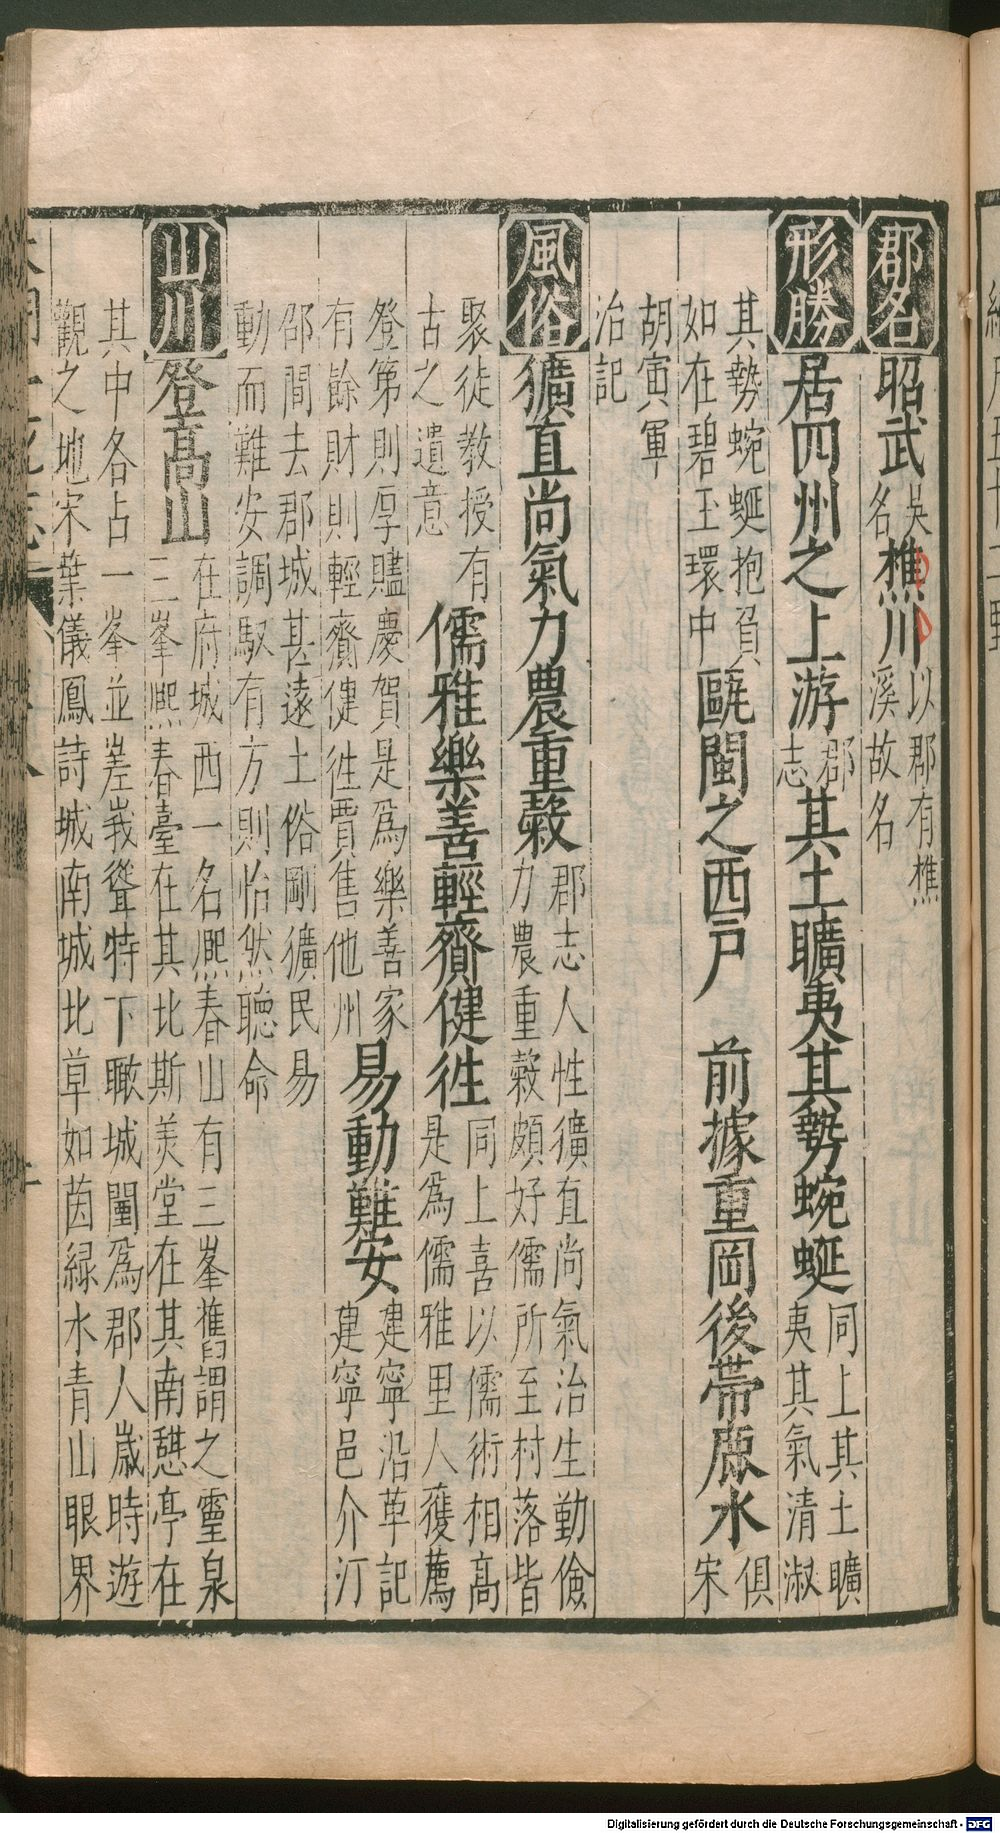 郡名昭武吳名樵川以郡有樵溪故名
形勝居四州之上游郡志其土曠夷其勢蜿蜒同上其土曠夷其氣清淑
其勢蜿蜒抱負如在碧玉環中甌閩之西戶 前據重岡後帶鹿水俱宋
胡寅軍治記
風俗獷直尚氣力農重穀郡志人性獷直尚氣治生勤儉力農重穀頗好儒所至村落皆
聚徒教授有古之遺意儒雅樂善輕齎健徃同上喜以儒術相高是爲儒雅里人獲薦
登第則厚贐慶賀是爲樂善家有餘財則輕齎健徃賈售他州易動難安建寧沿革記建寧邑介汀
邵間去郡城甚遠土俗剛獷民易動而難安調馭有方則怡然聽命
山川登高山在府城西一名熈春山有三峯舊謂之靈泉三峯熈春臺在其北斯美堂在其南憇亭在
其中各占一峯並差峩聳特下瞰城闉爲郡人歲時遊觀之地宋葉儀鳳詩城南城北草如茵綠水青山眼界
Digitalisierung gefördert durch die Deutsche Forschungsgemeinschaft - DFG